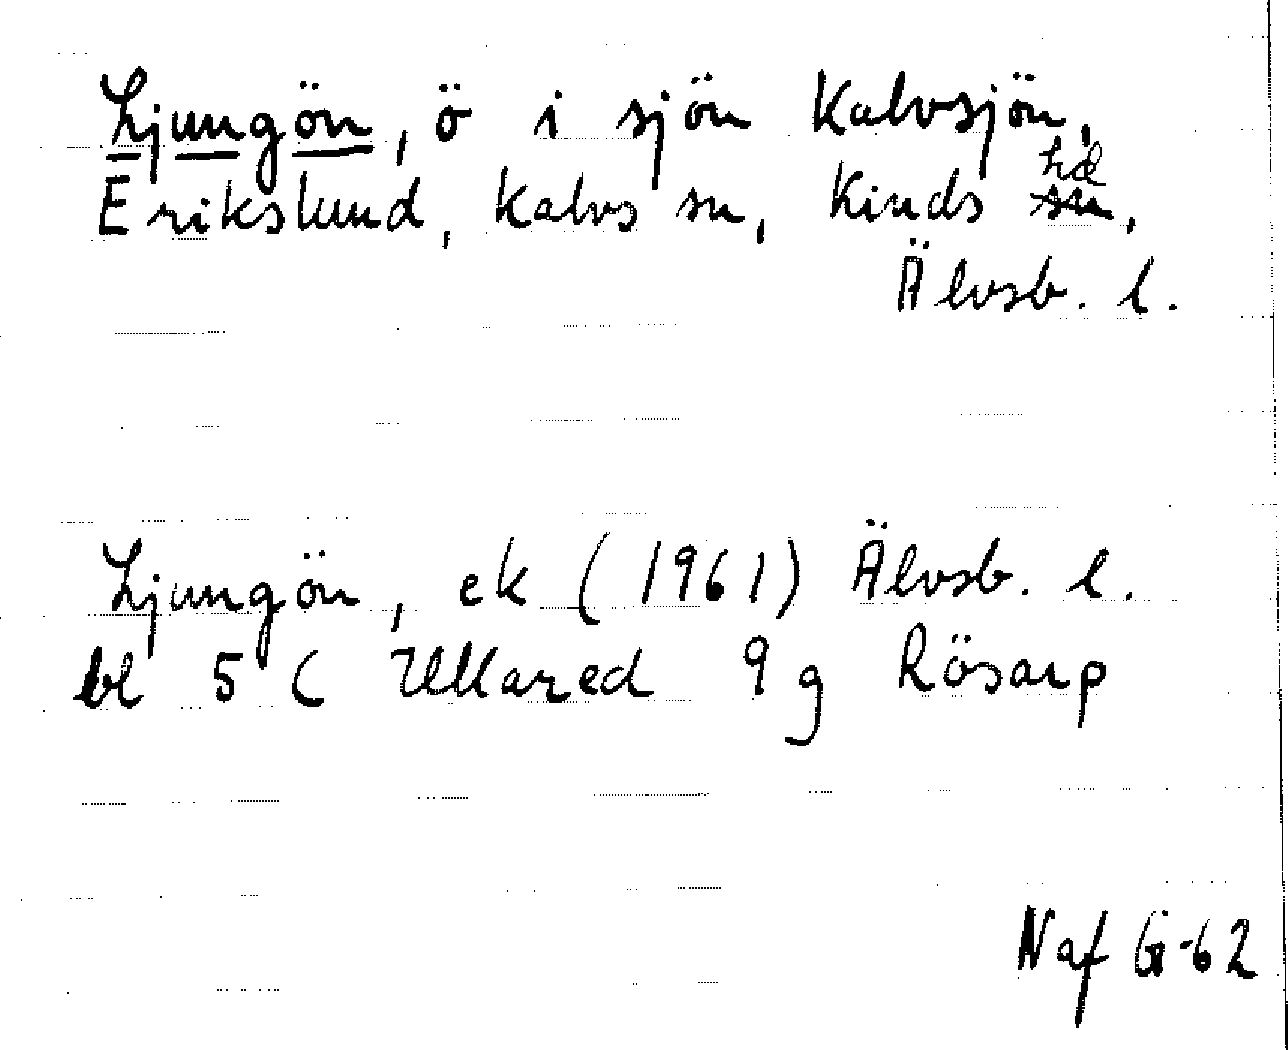 Ljungön, ö i sjön Kalvsjön,
Erikslund, Kalvs sn, Kinds hd
Älvsb. l.
Ljungön, ek (1961) Älvsb. l.
bl 5 C Ullared 9 g Rösarp
Naf G-62